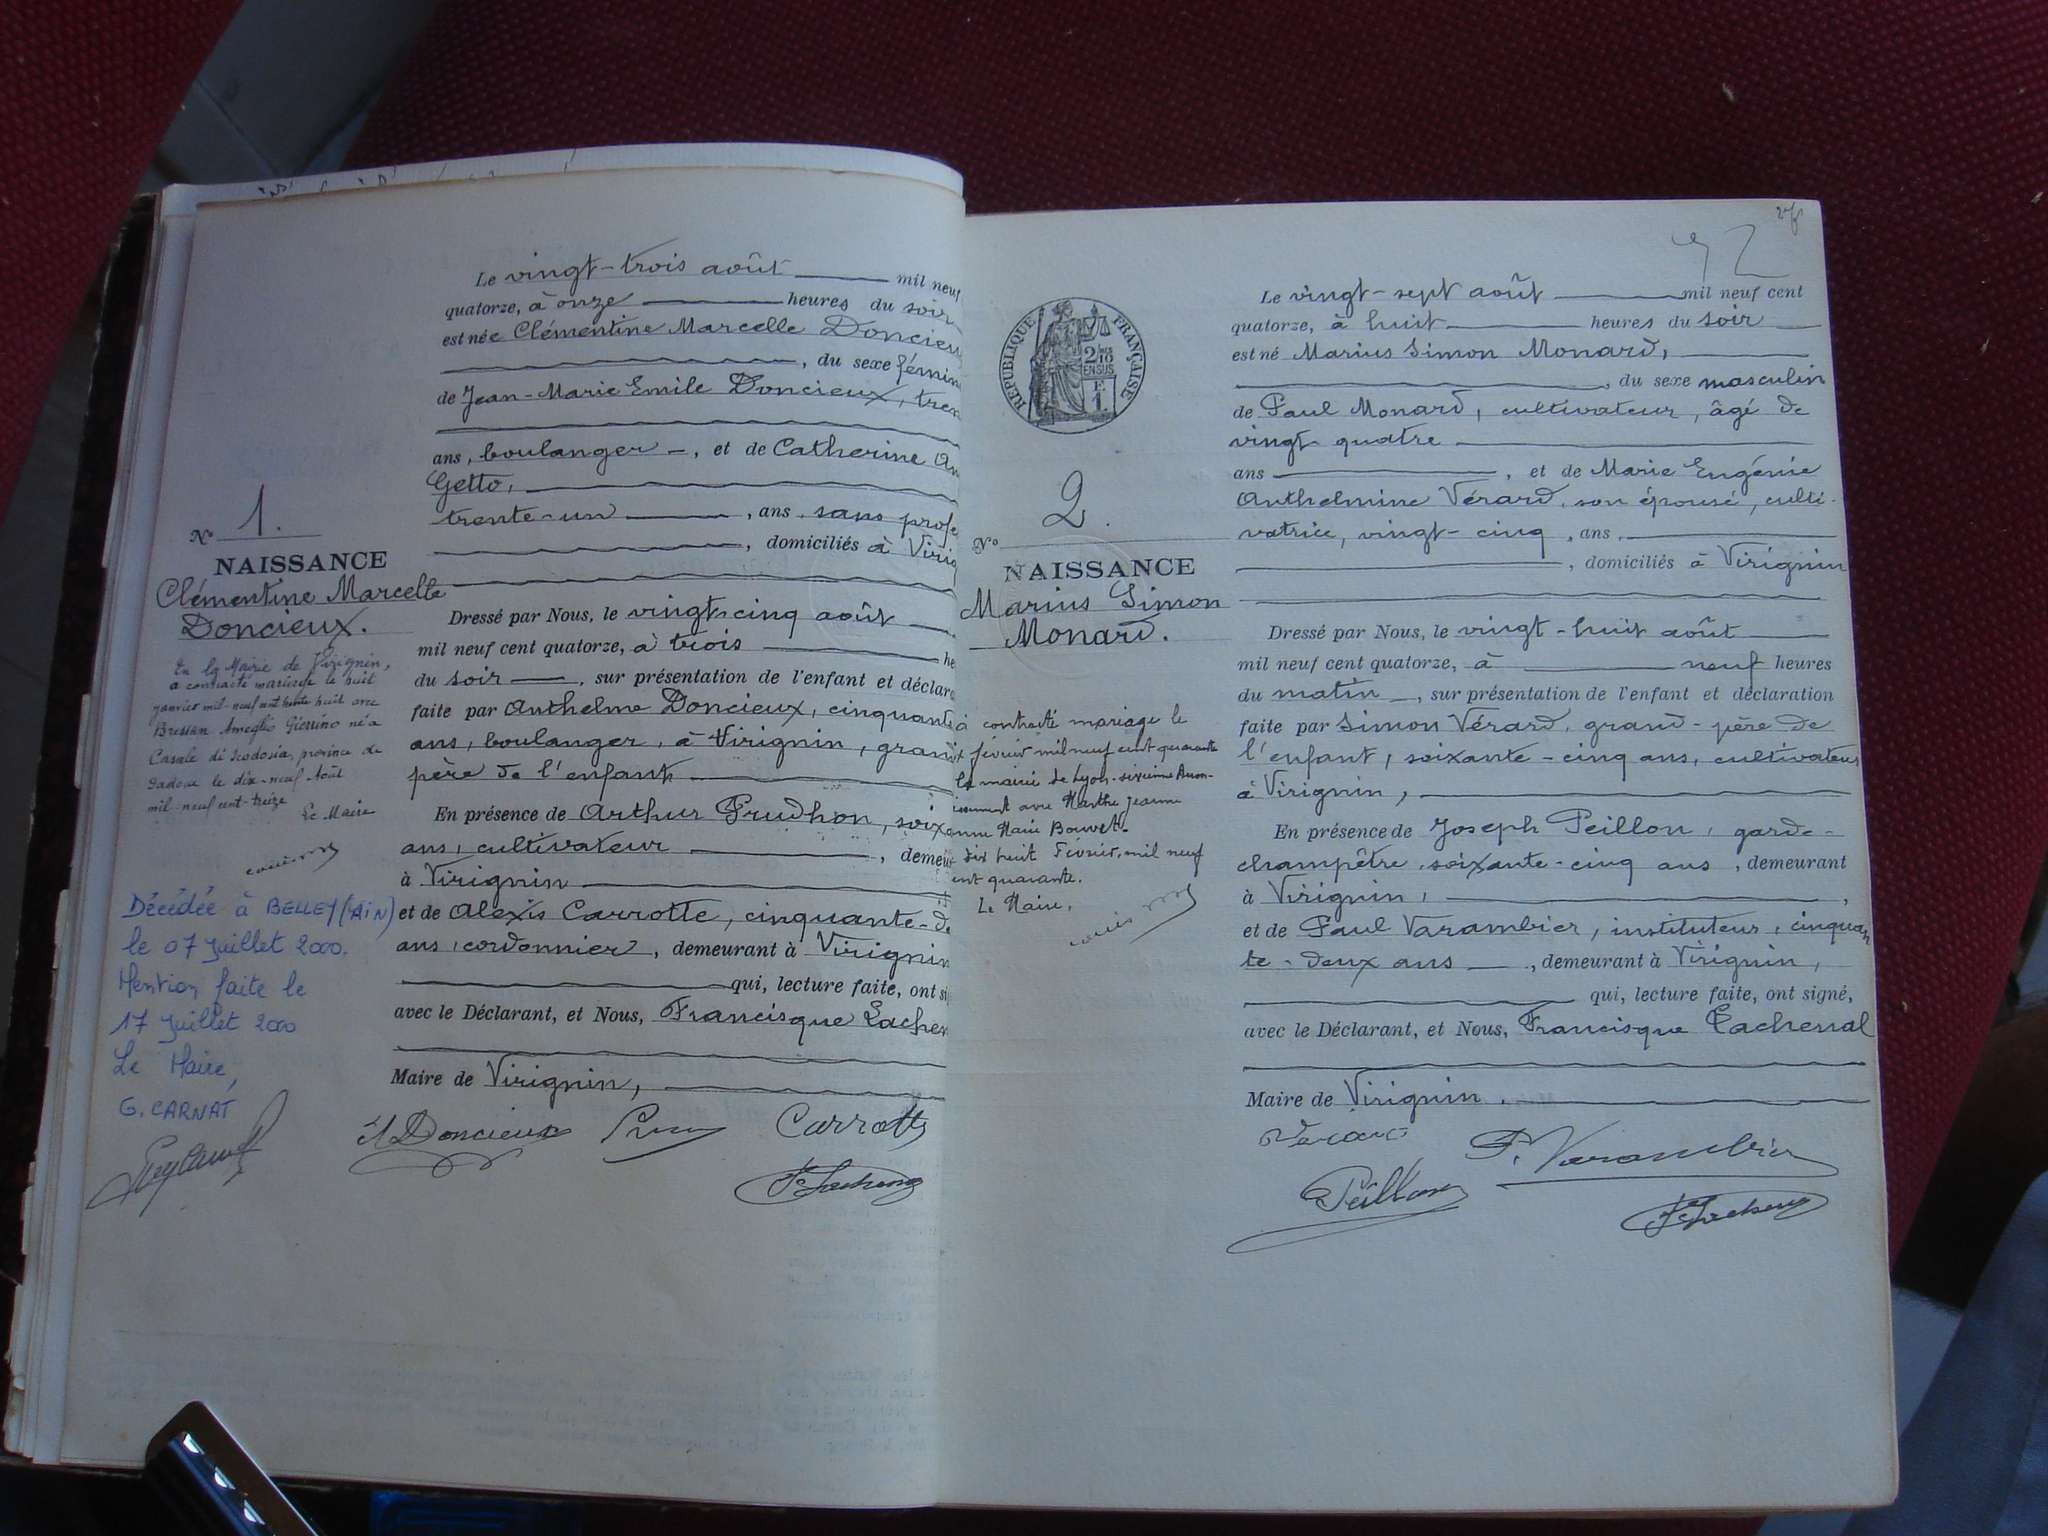 Le vingt-trois août mil neuf
quatorze, à onze heures du soir
est née Clémentine Marcelle Doncieux
, du sexe fémin
de Jean-Marie Emile Doncieux, tren
ans, boulanger, et de Catherine An
Getto,
trente-un, ans, sans profe
, domiciliés à Virig
N° 1.
NAISSANCE
Clémentine Marcelle
Doncieux.
En la Mairie de Virignin,
a contracté mariage le huit
janvier mil-neuf cent trente huit avec
Bressan Ameglio Giessino né à
Casale di Scodosia, province de
Padoue le dix-neuf Août
mil-neuf cent-treize
Le Maire
Décédée à BELLEY (AiN)
le 07 Juillet 2000.
Mention faite le
17 Juillet 2000
Le Maire,
G. CARNAT
Dressé par Nous, le vingt-cinq août
mil neuf cent quatorze, à trois he
du soir, sur présentation de l'enfant et déclara
faite par Anthelme Doncieux, cinquante
ans, boulanger, à Virignin, grand
père de l'enfant
En présence de Arthur Prudhon, soix
ans, cultivateur, demeu
à Virignin
et de Alexis Carrotte, cinquante-d
ans, cordonnier, demeurant à Virignin
qui, lecture faite, ont si
avec le Déclarant, et Nous, Francisque Lachen
Maire de Virignin,
A Doncieux Carrotte
F Lachenal
27
RÉPUBLIQUE FRANÇAISE
2 10
EN SUS
N° 2.
NAISSANCE
Marius Simon
Monard.
à contracté mariage le
février mil neuf cent quarante
la mairie de Lyon-sixième Arron-
issement avec Marthe Jeanne
Marie Bouvet.
dix huit Février, mil neuf
ent quarante.
Le Maire,
Le vingt-sept août mil neuf cent
quatorze, à huit heures du soir
est né Marius Simon Monard,
, du sexe masculin
de Paul Monard, cultivateur, âgé de
vingt-quatre
ans, et de Marie Eugénie
Anthelmine Vérard, son épouse, culti-
vatrice, vingt-cinq, ans,
, domiciliés à Virignin
Dressé par Nous, le vingt-huit août
mil neuf cent quatorze, à neuf heures
du matin, sur présentation de l'enfant et déclaration
faite par Simon Vérard, grand-père de
l'enfant, soixante-cinq ans, cultivateur
à Virignin,
En présence de Joseph Peillon, garde-
champêtre, soixante-cinq ans, demeurant
à Virignin,
et de Paul Varambier, instituteur, cinquan
te-deux ans, demeurant à Virignin,
qui, lecture faite, ont signé,
avec le Déclarant, et Nous, Francisque Lachenal
Maire de Virignin.
P. Varambier
Peillon
F Lachenal